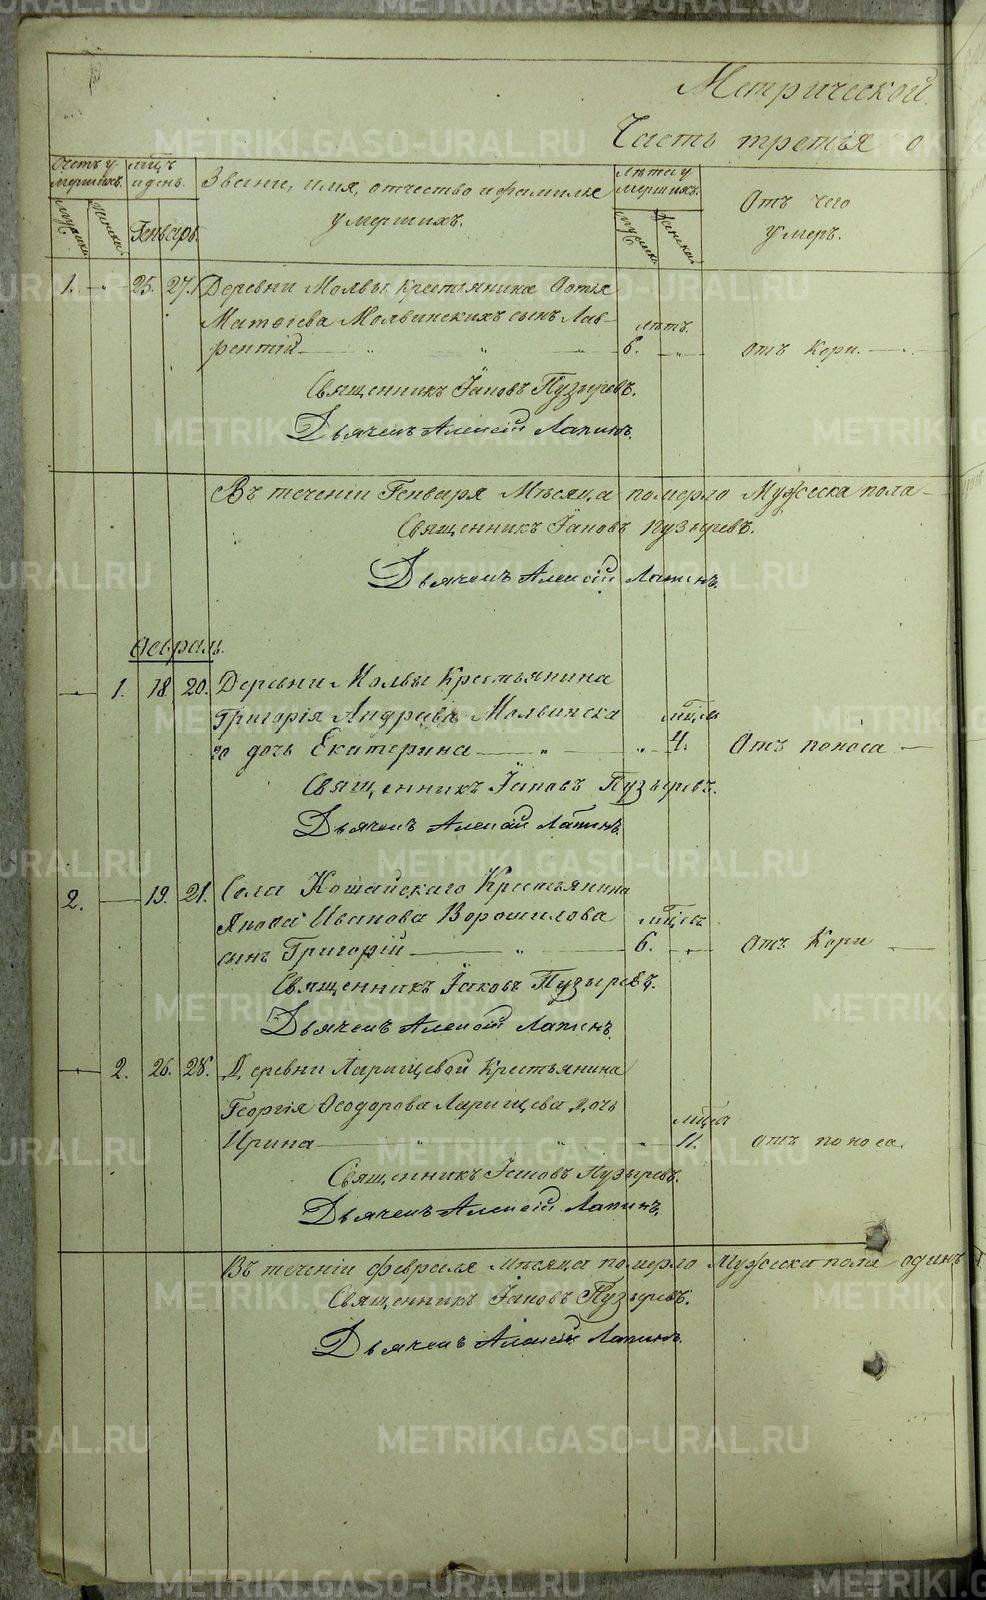 Метрической
Часть третья о
Счетъ у-
мершихъ.
мцъ
и день.
Званіе, имя, отчество и фамилье
умершихъ.
Лѣта у
мершихъ.
Отъ чего
умеръ.
Мужеска.
Женска.
Генварь.
Мужеска.
Женска.
1. — „ — 25. 27. Деревни Молвы Крестьянина Фотія
Матѳіева Молвинскихъ сынъ Лав-
лѣтъ.
рентій — „ „ — 6. — „ — отъ Кори. —
Священникъ Іаковъ Пузыревъ.
Дьячекъ Алексій Лапинъ.
Въ теченіи Генваря Мѣсяца померло Мужеска пола —
Священникъ Іаковъ Пузыревъ.
Дьячекъ Алексій Лапинъ.
Февраль.
— 1. 18 20. Деревни Молвы Крестьянина
Григорія Андреева Молвинска
мцъа
го дочь Екатерина — „ — „ 4. Отъ поноса —
Священникъ Іаковъ Пузыревъ.
Дьячекъ Алексій Лапинъ.
2. — 19. 21. Села Кошайскаго Крестьянина
Якова Иванова Ворошилова
мцъевъ
сынъ Григорій — „ — 6. — „ — отъ Кори —
Священникъ Іаковъ Пузыревъ.
Дьячекъ Алексій Лапинъ.
— 2. 26. 28. Деревни Ларищевой Крестьянина
Георгія Ѳеодорова Ларищева дочь
мцъевъ
Ирина — „ „ „ — 11. отъ поноса.
Священникъ Іаковъ Пузыревъ.
Дьячекъ Алексій Лапинъ.
Въ теченіи февраля мѣсяца померло Мужеска пола одинъ
Священникъ Іаковъ Пузыревъ.
Дьячекъ Алексій Лапинъ.
METRIKI.GASO-URAL.RU